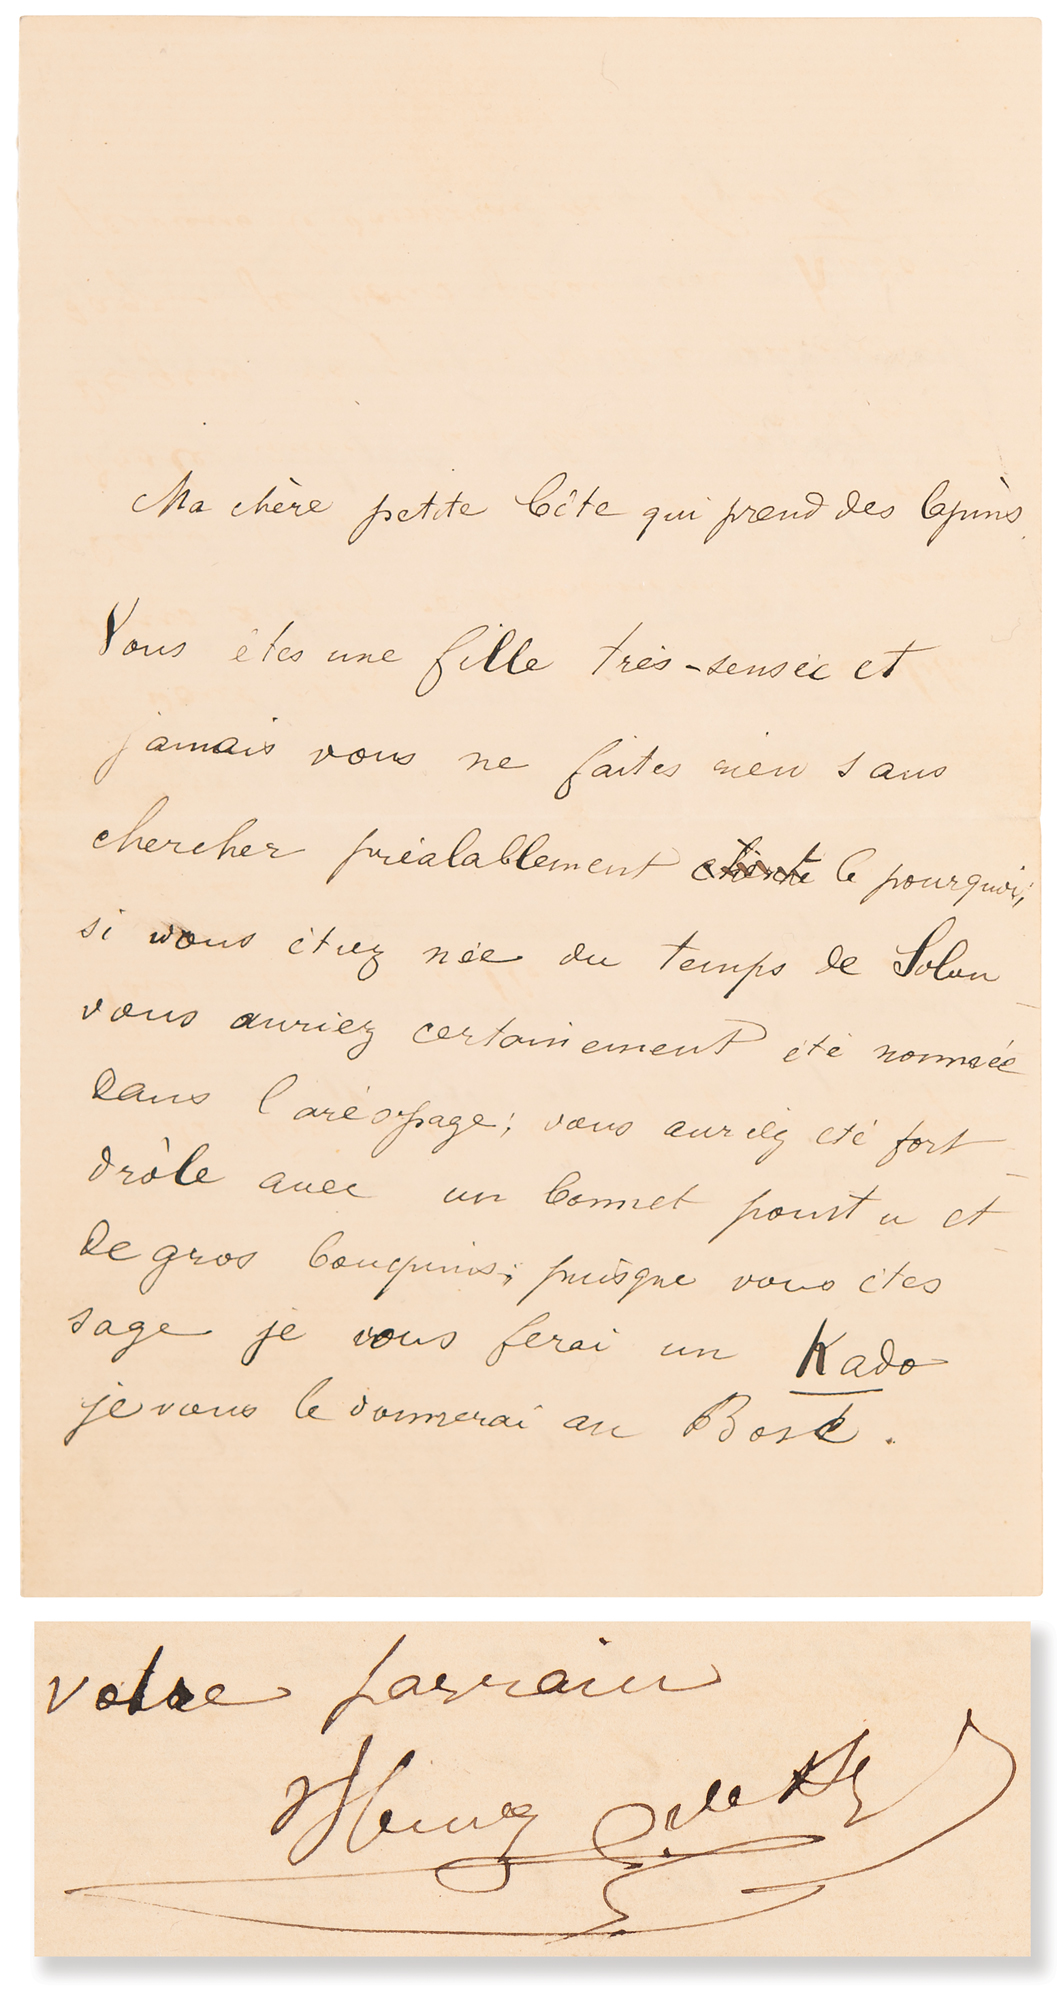 Ma chère petite bête qui prend des lapins.
Vous êtes une fille très-sensée et
jamais vous ne faites rien sans
chercher préalablement le pourquoi;
si vous étiez née du temps de Solon
vous auriez certainement été nommée
dans l'aréopage; vous auriez été fort
drôle avec un bonnet pointu et
de gros bouquins; puisque vous êtes
sage je vous ferai un Kado
je vous le donnerai au Bosc.
votre parrain
Henry de